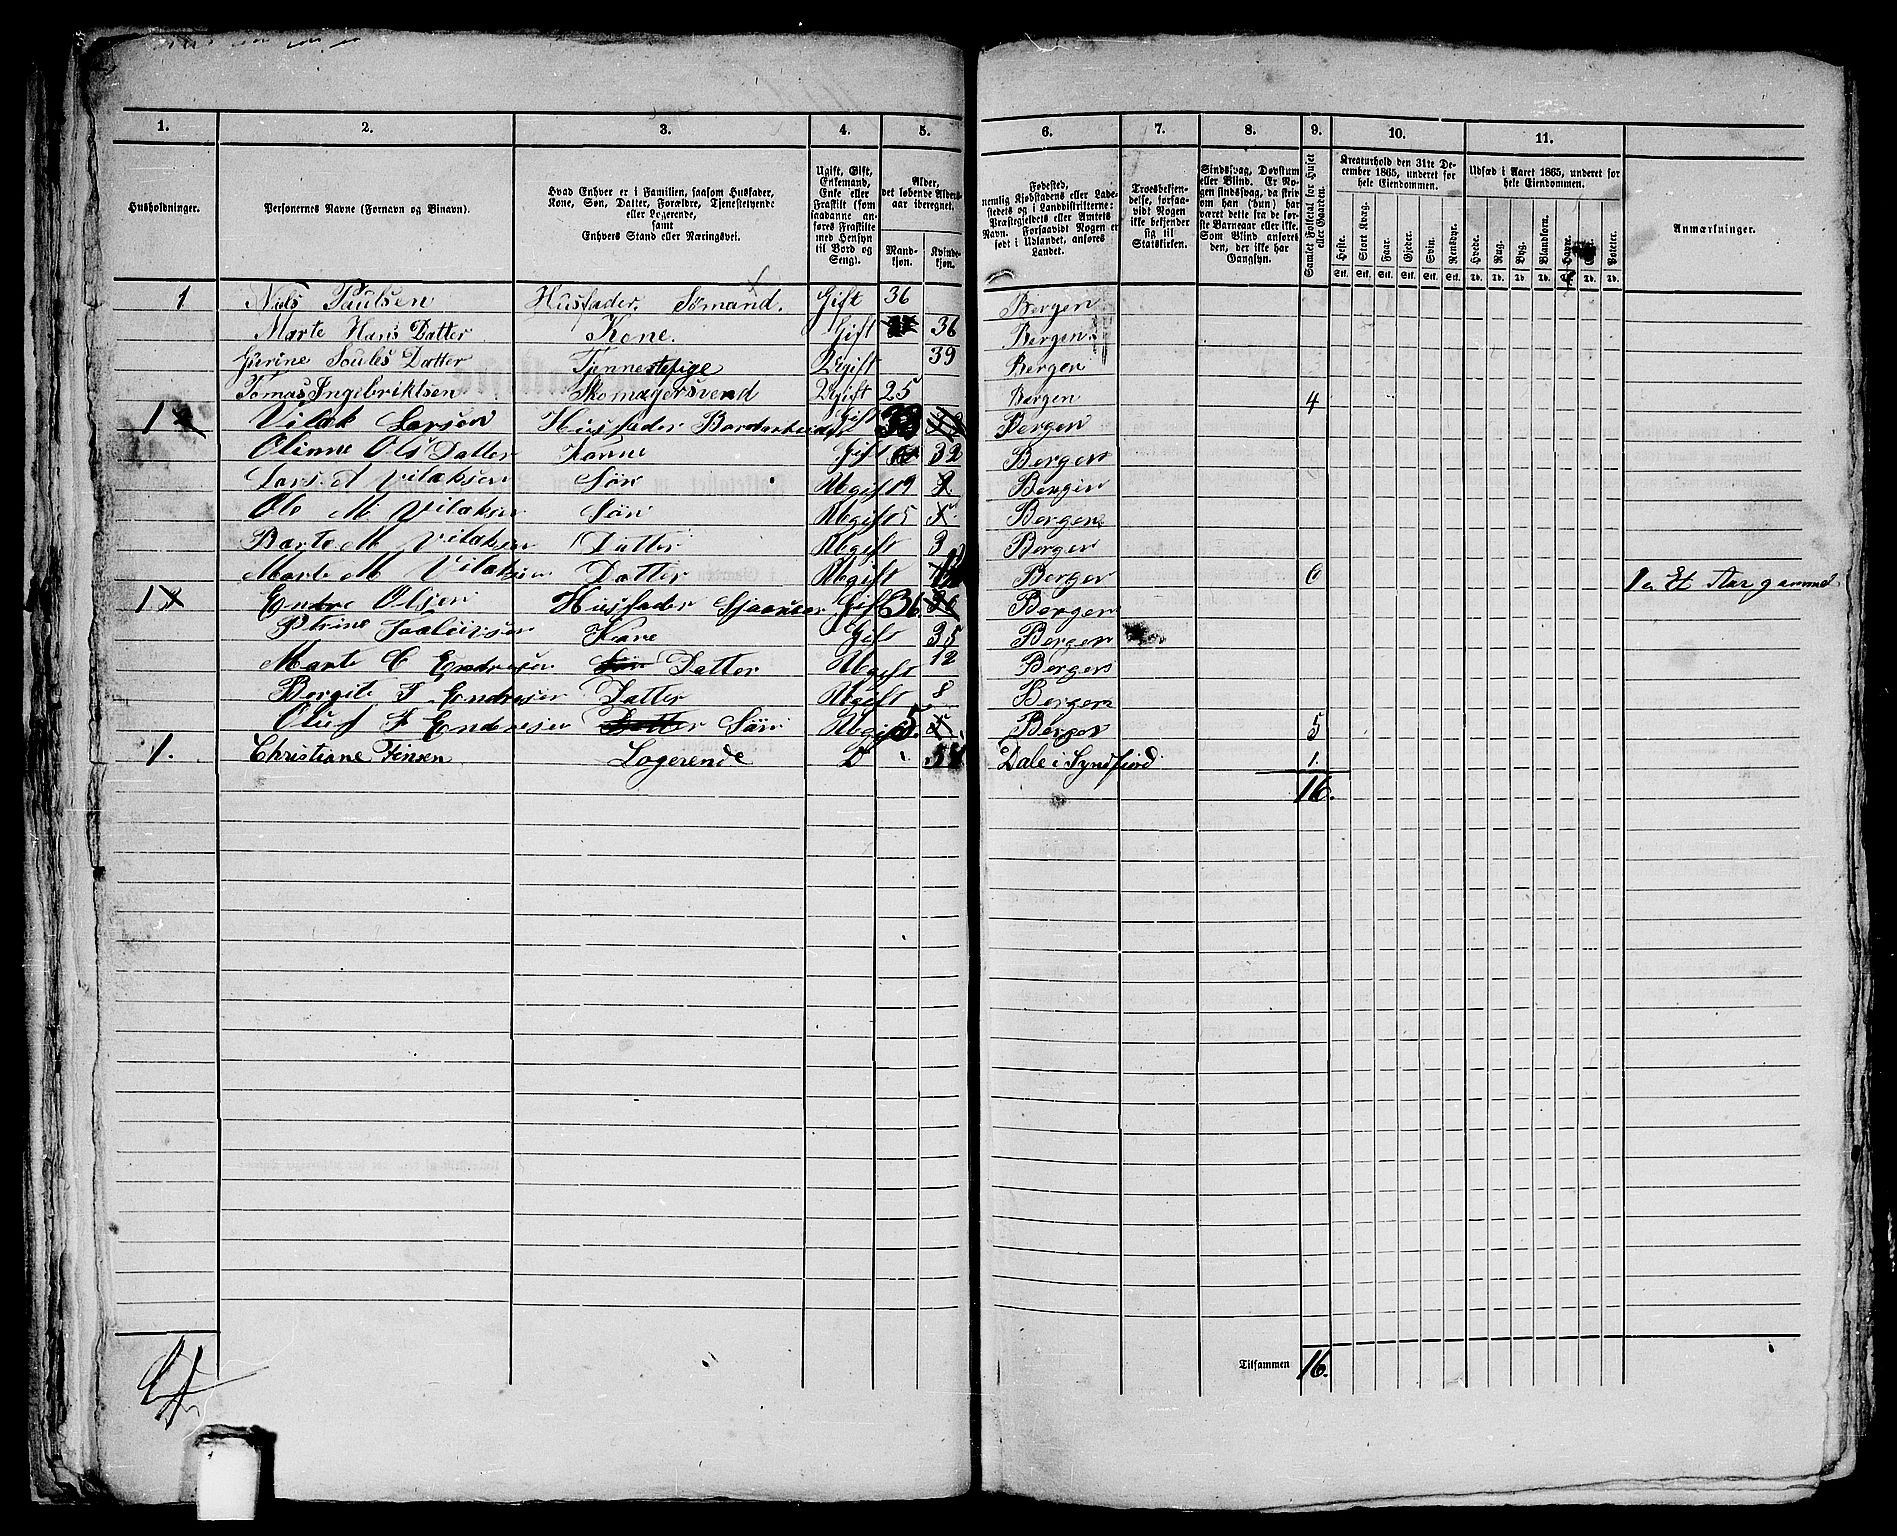 1. 2. 3. 4. 5. 6. 7. 8. 9. 10. 11.
Husholdninger.
Personernes Navne (Fornavn og Binavn).
Hvad Enhver er i Familien, saasom Husfader, Kone, Søn, Datter, Forældre, Tjenestetyende eller Logerende, samt Enhvers Stand eller Næringsvei.
Ugift, Gift, Enkemand, Enke eller Fraskilt (som saadanne anføres Fraskilte med Hensyn til Bord og Seng).
Alder, det løbende Alders-aar iberegnet.
Mand-kjøn. Kvinde-kjøn.
Fødested, nemlig Kjøbstadens eller Ladestedets og i Landdistrifterne: Præstegjeldets eller Amtets Navn. Forsaavidt Nogen er født i Udlandet, anføres Landet.
Troesbekjendelse, forsaavidt Nogen ikke bekjender sig til Statskirken.
Sindssvag, Døvstum eller Blind. Er Nogen sindssvag, da skrives om han (hun) har været dette fra de første Barneaar eller ikke. Som Blind anføres den, der ikke har Gangsyn.
Samlet Folketal for Huset eller Gaarden.
Kreaturhold den 31te December 1865, underet for hele Eiendommen.
Heste. Stort Kvæg. Faar. Gjeder. Svin. Rensdyr.
Udsæd i Aaret 1865, underet for hele Eiendommen.
Hvede. Rug. Byg. Blandkorn. Havre. Poteter.
Anmærkninger.
1 Niels Paulsen Husfader. Sømand. Gift 36 Bergen
Marte Hans Datter Kone. Gift 36 Bergen.
Datter Tjennestepige Ugift 39 Bergen
Tomas Ingebriktsen Skomagersvend Ugift 25 Bergen 4
1 Vilak Larsen Husfader Gift 38 Bergen
Olinne Ols Datter Konne Gift 32 Bergen
Lars Vilaksen Sön Ugift 9 Bergen
Ole M Vilaksen Sön Ugift 5 Bergen
Barte M Vilaksen Datter Ugift 3 Bergen
Marte M Vilaksen Datter Ugift Bergen 6 Et Aar gammel
1 Endre Olsen Husfader Gift 36 Bergen
Kone Gift 35 Bergen
Marte C Endresen Datter Ugift 12 Bergen
Bergite T Endresen Datter Ugift 8 Bergen
Oluf F Endresen Sön Ugift 5 Bergen 5
1. Christiane Jensen Logerende 54 Dale i Syndfjord 1.
16.
Tilsammen 16.
4